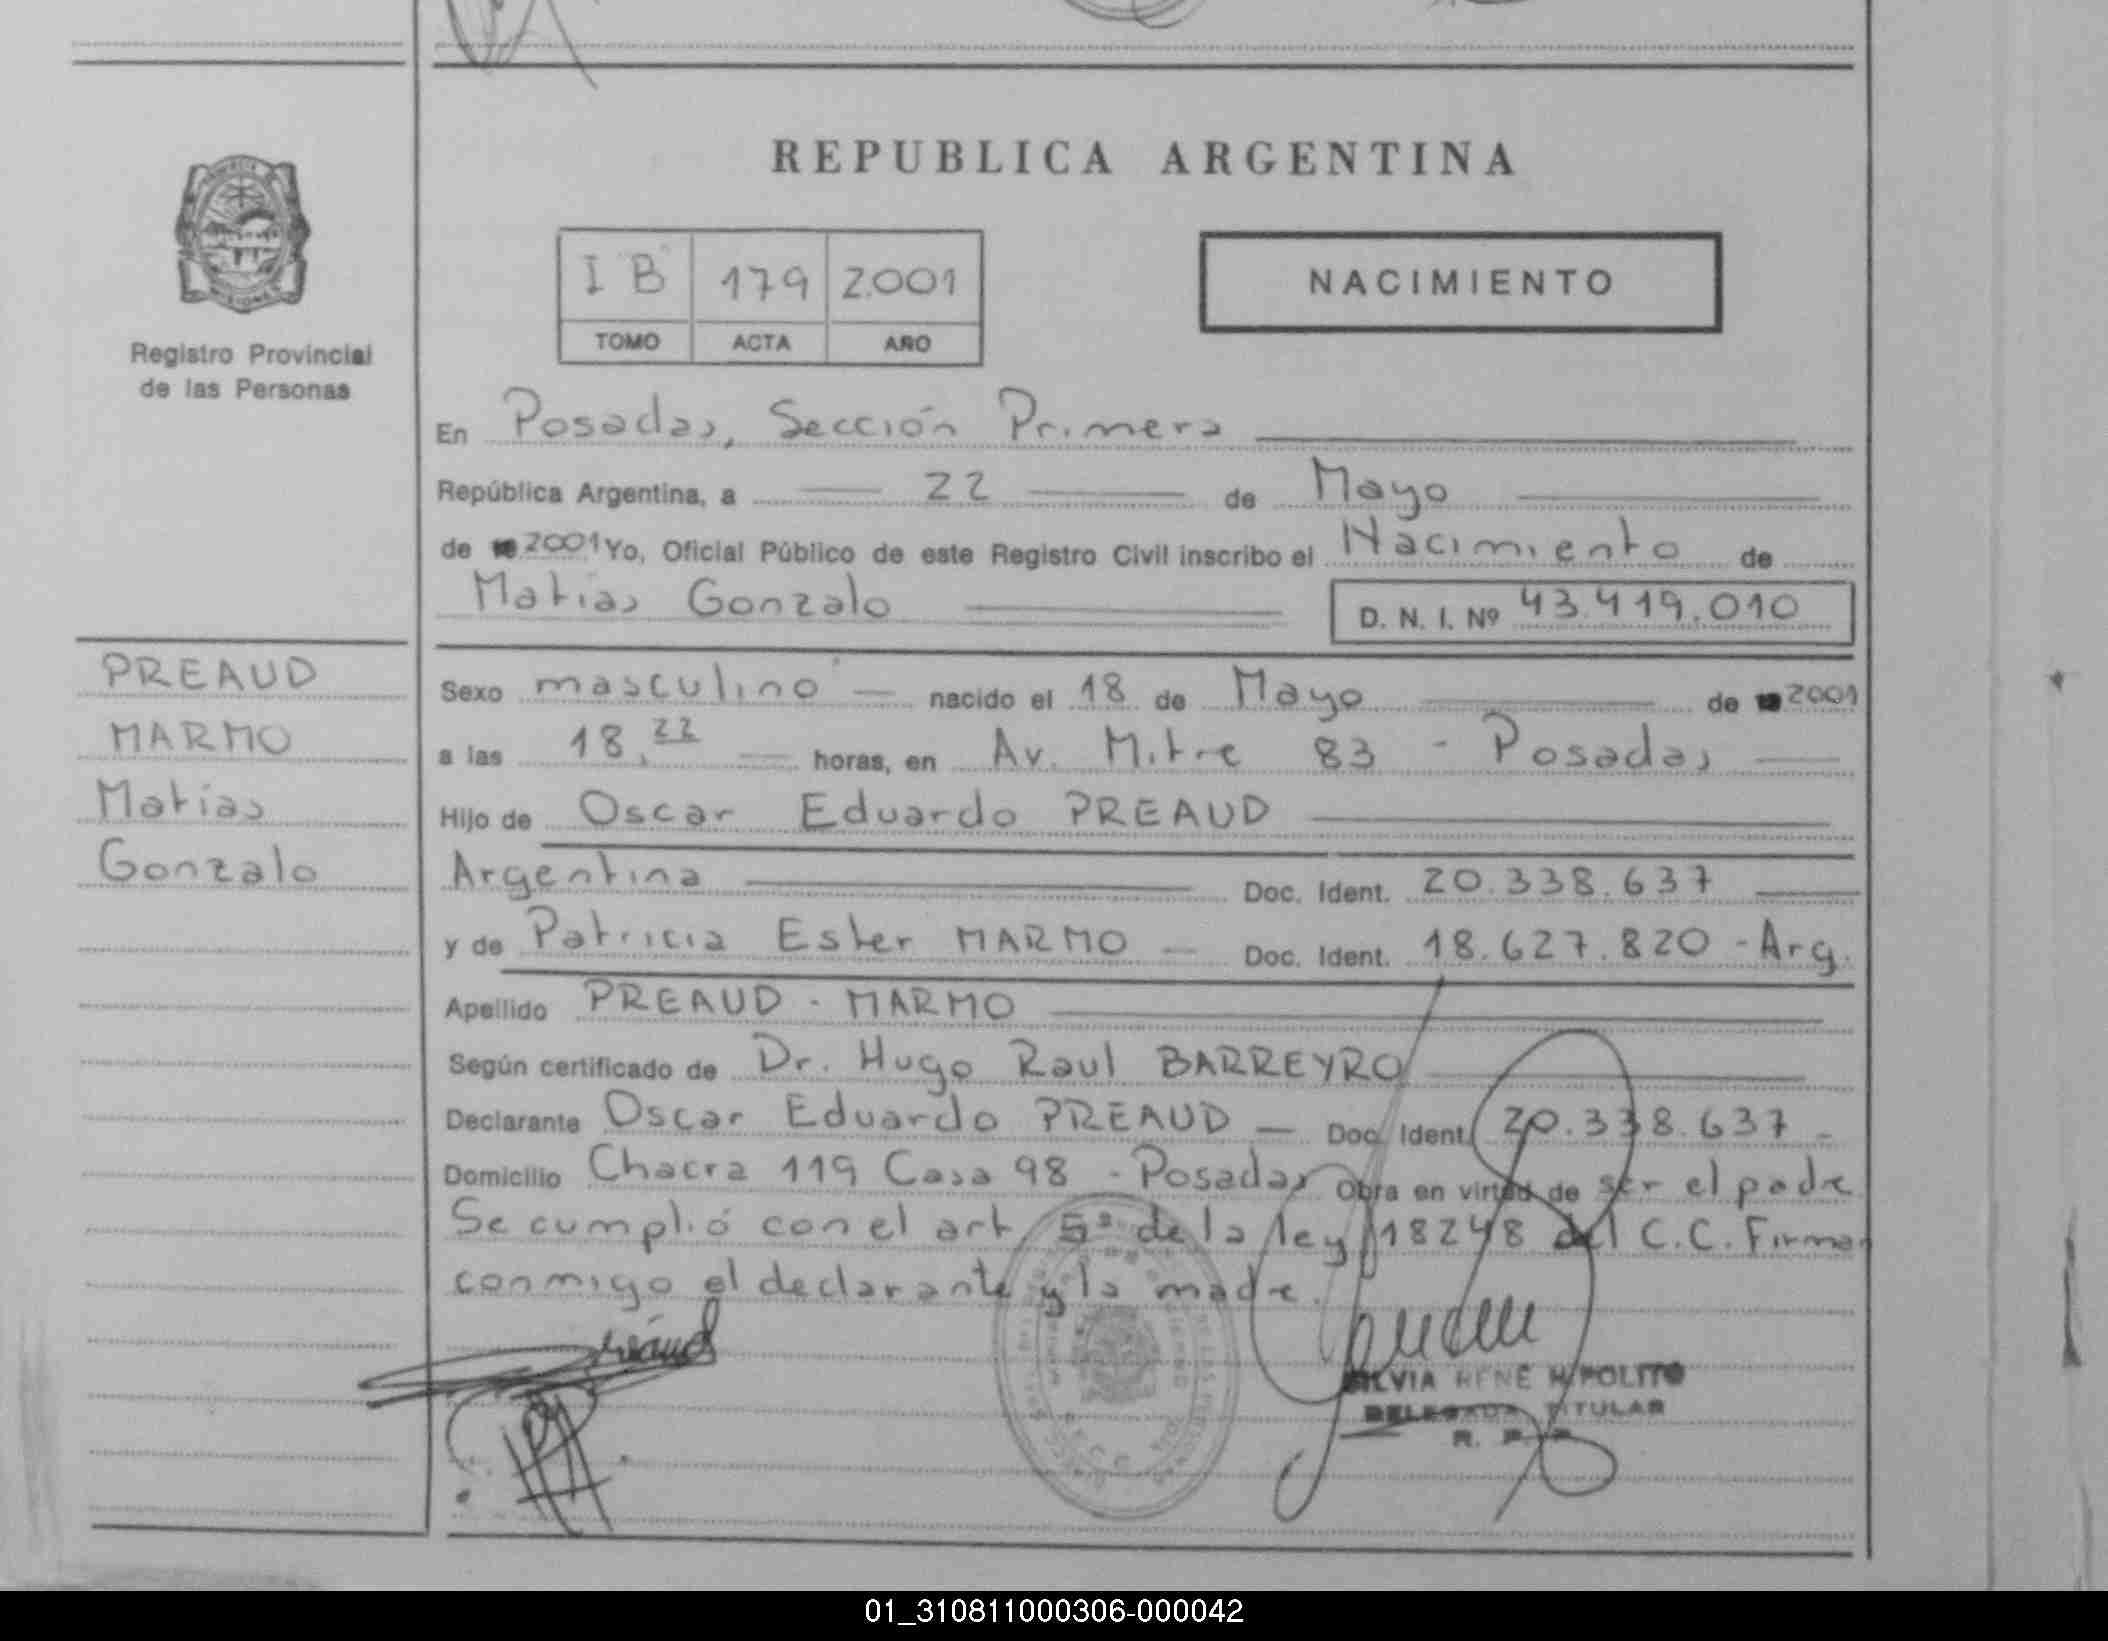 REPUBLICA ARGENTINA
I B 179 2.001
TOMO ACTA AÑO
NACIMIENTO
Registro Provincial
de las Personas
En Posadas, Sección Primera
República Argentina, a 22 de Mayo
de 2001 Yo, Oficial Público de este Registro Civil inscribo el Nacimiento de
Matias Gonzalo D. N. I. Nº 43.419.010
PREAUD
MARMO
Matias
Gonzalo
Sexo masculino nacido el 18 de Mayo de 2001
a las 18.22 horas, en Av. Mitre 83 - Posadas
Hijo de Oscar Eduardo PREAUD
Argentina Doc. Ident. 20.338.637
y de Patricia Ester MARMO Doc. Ident. 18.627.820 - Arg.
Apellido PREAUD - MARMO
Según certificado de Dr. Hugo Raul BARREYRO
Declarante Oscar Eduardo PREAUD Doc. Ident. 20.338.637
Domicilio Chacra 119 Casa 98 - Posadas Obra en virtud de ser el padre
Se cumplió con el art. 5º de la ley 18248 del C.C. Firman
conmigo el declarante y la madre.
SILVIA RENE HIPOLITO
DELEGADA TITULAR
R. P. P.
01_310811000306-000042